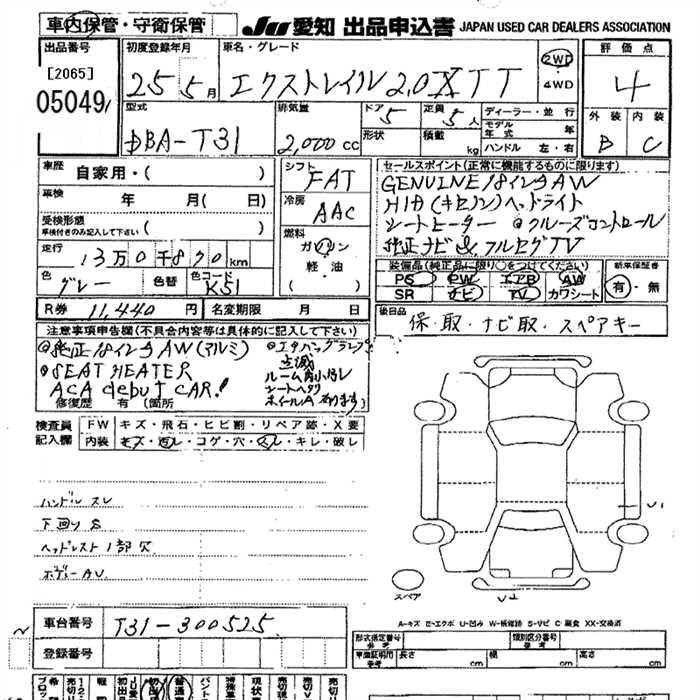 車内保管・守衛保管
JU 愛知 出品申込書 JAPAN USED CAR DEALERS ASSOCIATION
出品番号 初度登録年月 車名・グレード 2WD 4WD 評価点
[2065]
05049
25 5月 エクストレイル 2.0 X TT 4
型式 排気量 ドア 定員 ディーラー・並行 外装 内装
DBA-T31 2,000cc 5 5人 モデル年式 年 B C
形状 積載 kg ハンドル 左・右
車歴 自家用・( ) シフト FAT セールスポイント(正常に機能するものに限ります)
車検 年 月( 日) 冷房 AAC
GENUINE 18インチAW
HID(キセノン)ヘッドライト
シートヒーター クルーズコントロール
純正ナビ & フルセグTV
受検形態
車検付きのみ記入して下さい ( )
燃料 ガソリン 軽・油
走行 13万0千870km
装備品(純正品に限り○をつけてください) 新車保証書
PS PW エアB AW 有・無
SR ナビ TV カワシート
色 グレー 色替 色コード K51
R券 11,440円 名変期限 月 日
後日品 保・取・ナビ取・スペアキー
注意事項申告欄(不具合内容等は具体的に記入して下さい)
純正18インチAW(アルミ) エアバッグランプ
点滅
SEAT HEATER ルーム内小汚レ
ACA debut CAR! シートヘタリ
ホイールAあります
修復歴 有(箇所
検査員記入欄 FW キズ・飛石・ヒビ割・リペア跡・X要
内装 キズ・汚レ・コゲ・穴・スレ・キレ・破レ
ハンドル スレ
下回り S
ヘッドレスト1部欠
ボデー AU
スペア
A-キズ E-エクボ U-凹み W-板修跡 S-サビ C 腐食 XX-交換済
車台番号 T31-300525
登録番号
形式指定番号 参考 類別区分番号 参考
車庫証明用 参考 長さ cm 幅 cm 高さ cm